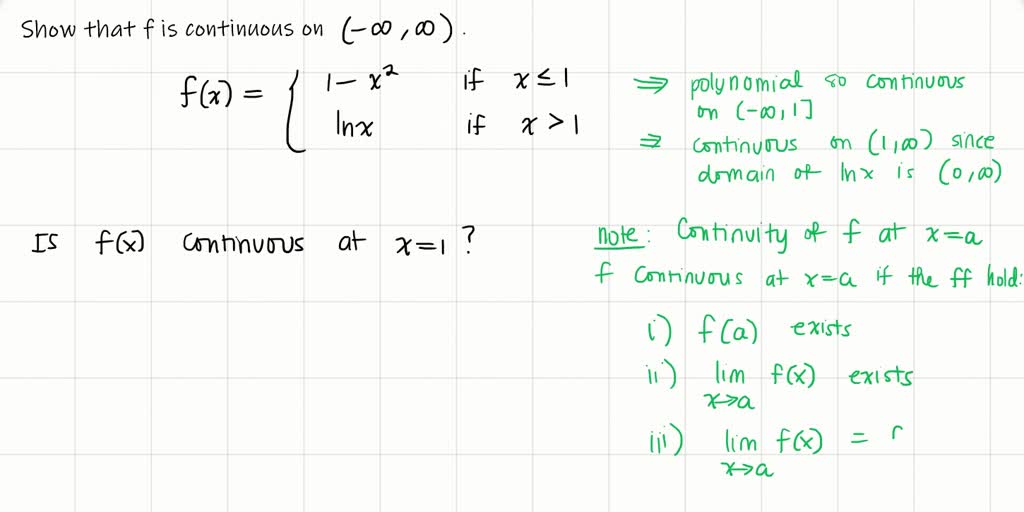 Show that f is continuous on (-∞, ∞).
f(x) = { 1 - x² if x ≤ 1
ln x if x > 1
⇒ polynomial so continuous
on (-∞, 1]
⇒ continuous on (1, ∞) since
domain of ln x is (0, ∞)
Is f(x) continuous at x = 1 ?
note: Continuity of f at x = a
f continuous at x = a if the ff hold:
i) f(a) exists
ii) lim f(x) exists
x→a
iii) lim f(x) =
x→a